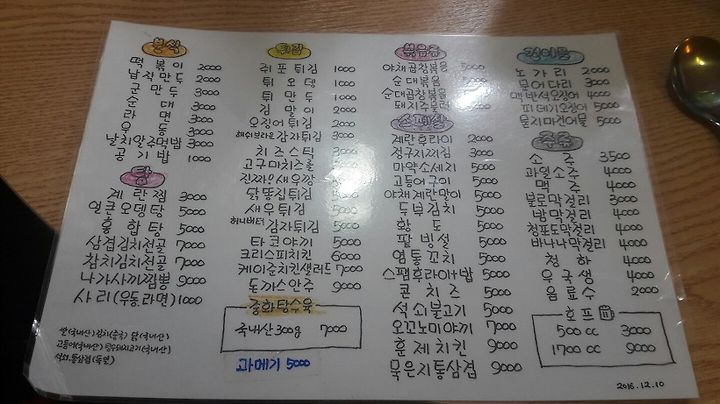 분식
떡볶이 2000
납작만두 2000
군만두 3000
순대 3000
라면 3000
우동 3000
날치알주먹밥 3000
공기밥 1000
탕
계란찜 3000
얼큰오뎅탕 5000
홍합탕 5000
삼겹김치전골 7000
참치김치전골 7000
나가사끼짬뽕 9000
사리(우동,라면) 1000
튀김
쥐포튀김 1000
튀오뎅 1000
튀만두 1000
김말이 2000
오징어튀김 2000
해쉬브라운감자튀김 3000
치즈스틱 3000
고구마치즈롤
진짜!새우깡
닭똥집튀김 5000
새우튀김 5000
허니버터감자튀김 5000
타코야끼 5000
크리스피치킨 6000
케이준치킨샐러드 7000
돈까스안주 9000
중화탕수육
국내산300g 7000
과메기 5000
볶음류
야채곱창볶음 5000
순대볶음 5000
순대곱창볶음
돼지주물럭
스페셜
계란후라이 2000
정구지찌짐 3000
마약소세지 5000
고등어구이 5000
야채계란말이 5000
두부김치 5000
황도 5000
팥빙설 5000
염통꼬치 5000
스팸후라이+밥 5000
콘치즈 5000
석쇠불고기 5000
오꼬노미야끼 7000
훈제치킨 9000
묵은지통삼겹 9000
건어물
노가리 2000
문어다리 3000
맥반석오징어 4000
피데기오징어 5000
물지마건어물 5000
주류
소주 3500
과일소주 4000
맥주 4000
불로막걸리 3000
밤막걸리 4000
청포도막걸리 4000
바나나막걸리 4000
청하 4000
우국생 4000
음료수 2000
호프
500cc 3000
1700cc 9000
쌀(국내산) 김치(중국) 닭(국내산)
고등어(국내산) 탕수돼지고기(국내산)
석쇠,통삼겹(독일)
2016.12.10